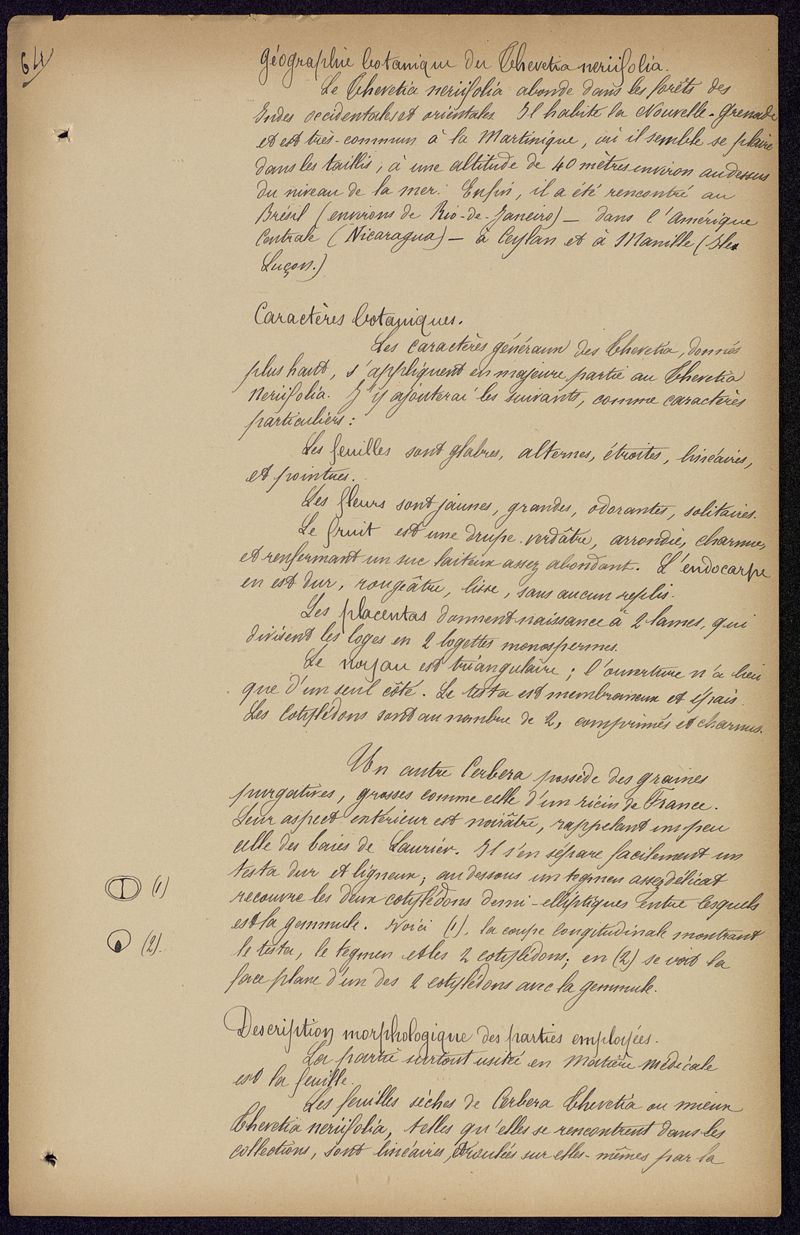 64
Géographie botanique du Thevetia neriifolia.
Le Thevetia neriifolia abonde dans les forêts des
Indes occidentales et orientales Il habite la Nouvelle-Grenade
et est très-commun à la Martinique, où il semble se plaire
dans les taillis, à une altitude de 40 mètres environ au dessus
du niveau de la mer. Enfin, il a été rencontré au
Brésil (environs de Rio-de-Janeiro) – dans l'Amérique
Centrale (Nicaragua) – à Ceylan et à Manille (Iles
Luçon.)
Caractères botaniques.
Les caractères généraux des Thevetia, donnés
plus haut, s'appliquent en majeure partie au Thevetia
neriifolia. J'y ajouterai les suivants, comme caractères
particuliers :
Les feuilles sont glabres, alternes, étroites, linéaires,
et pointues.
Les fleurs sont jaunes, grandes, odorantes, solitaires.
Le fruit est une drupe verdâtre, arrondie, charnue,
et renfermant un suc laiteux assez abondant. L'endocarpe
en est dur, rougeâtre, lisse, sans aucun replis.
Les placentas donnent naissance à 2 lames, qui
divisent les loges en 2 logettes monospermes.
Le noyau est triangulaire ; l'ouverture n'a lieu
que d'un seul côté. Le testa est membraneux et épais.
Les Cotylédons sont au nombre de 2, comprimés et charnus.
Un autre Cerbera possède des graines
purgatives, grosses comme celle d'un ricin de France.
Leur aspect extérieur est noirâtre, rappelant un peu
celle des baies de Laurier. Il s'en sépare facilement un
testa dur et ligneux ; au dessous un tegmen assez délicat
recouvre les deux cotylédons demi-elliptiques entre lesquels
est la gemmule. Voici (1), la coupe longitudinale montrant
le testa, le tegmen et les 2 cotylédons ; en (2) se voit la
face plane d'un des 2 cotylédons avec la gemmule.
(1)
(2).
Description morphologique des parties employées.
La partie surtout usitée en Matière médicale
est la feuille.
Les feuilles sèches de Cerbera Thevetia ou mieux
Thevetia neriifolia, telles qu'elles se rencontrent dans les
collections, sont linéaires, enroulées sur elles-mêmes par la